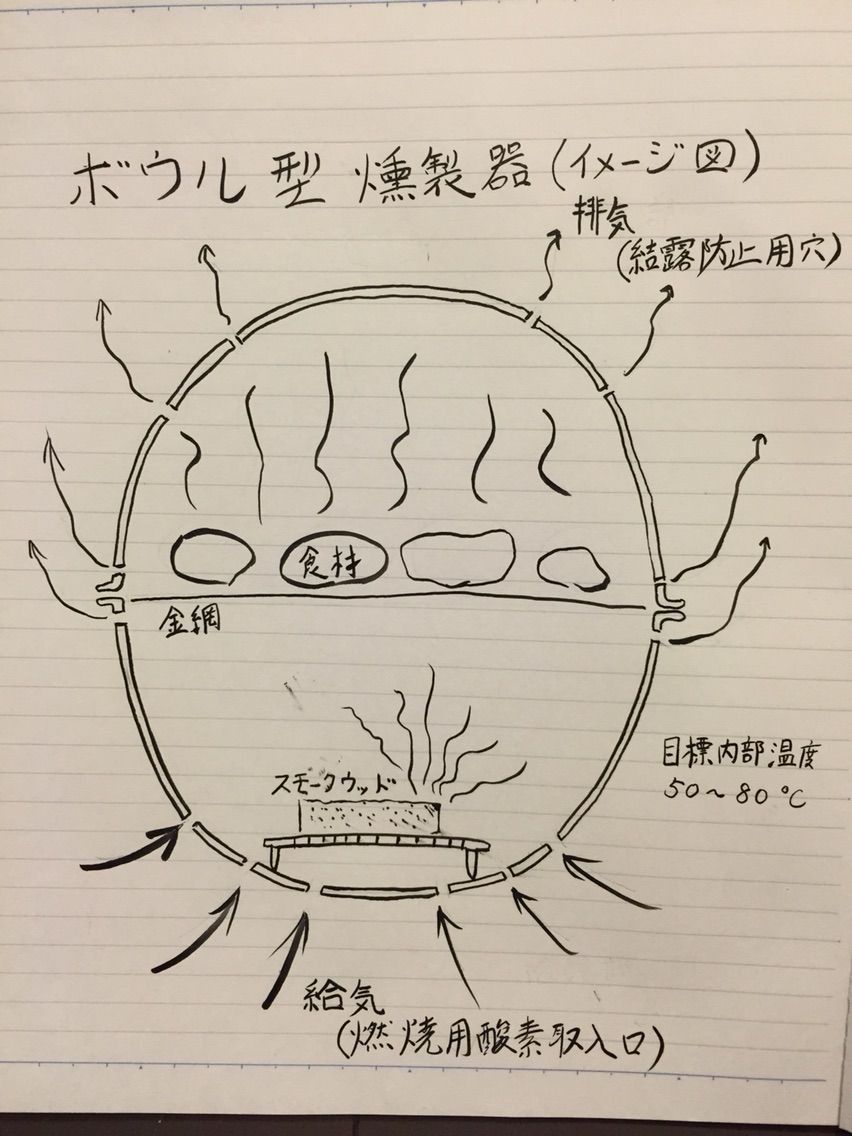 ボウル型燻製器(イメージ図)
排気
(結露防止用穴)
食材
金網
目標内部温度
50～80℃
スモークウッド
給気
(燃焼用酸素取入口)